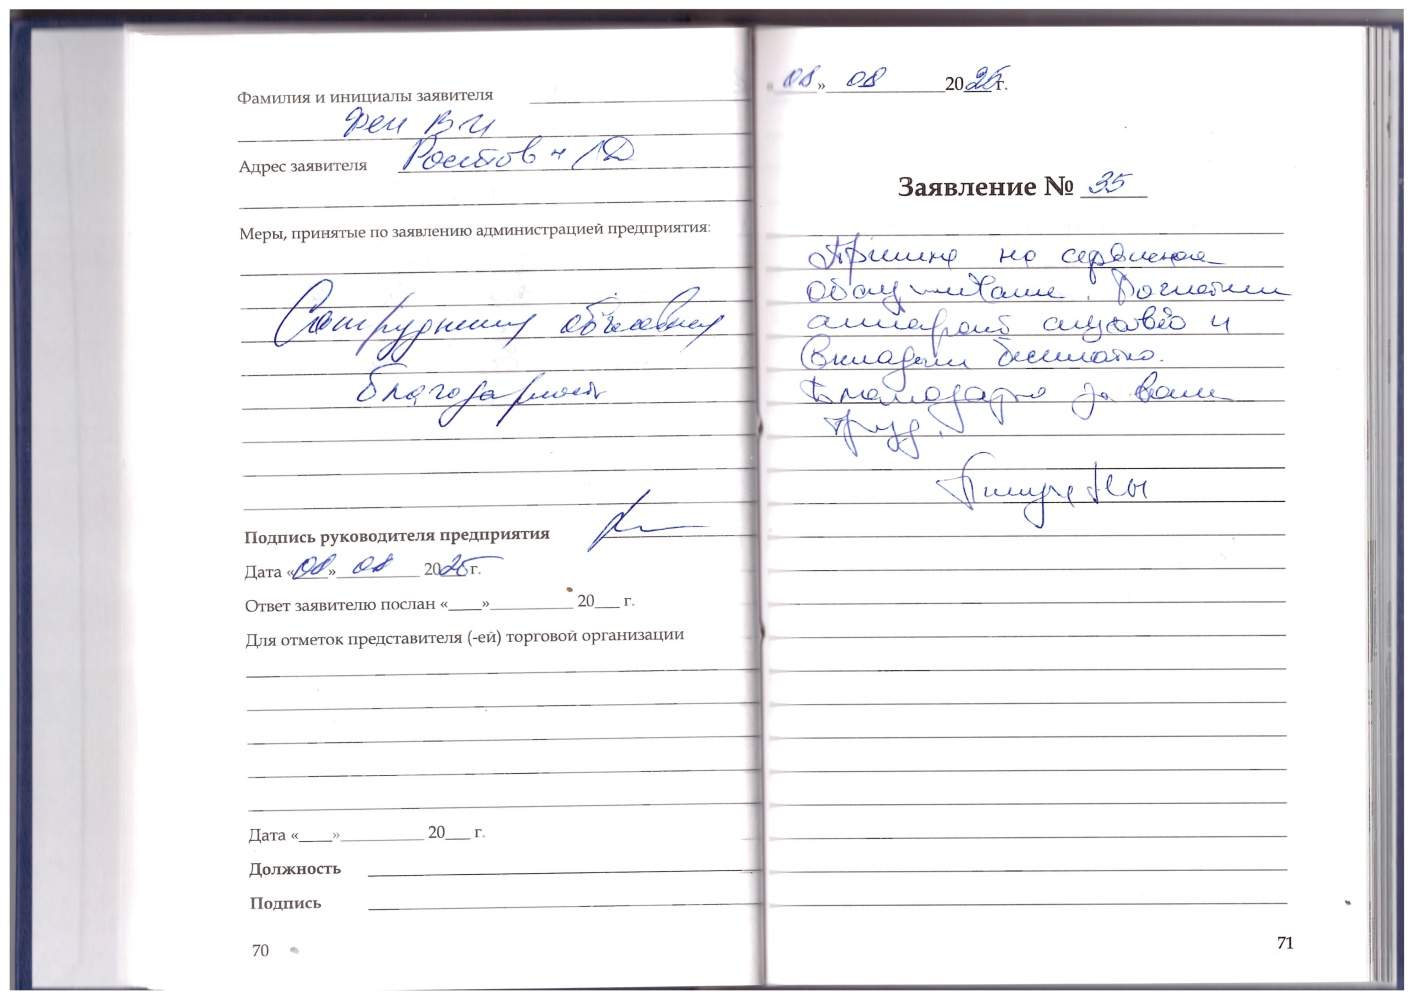 Фамилия и инициалы заявителя
Фен В И
Адрес заявителя Ростов н/Д
Меры, принятые по заявлению администрацией предприятия:
Сотруднику объявлена
благодарность
Подпись руководителя предприятия
Дата «08» 08 2025 г.
Ответ заявителю послан «____»__________ 20___ г.
Для отметок представителя (-ей) торговой организации
Дата «____»__________ 20___ г.
Должность
Подпись
70
«08» 08 2025 г.
Заявление № 35
Пришла на сервисное
обслуживание. Почистили
аппарат слуховой и
вкладыши бесплатно.
Благодарю за ваш
труд.
71